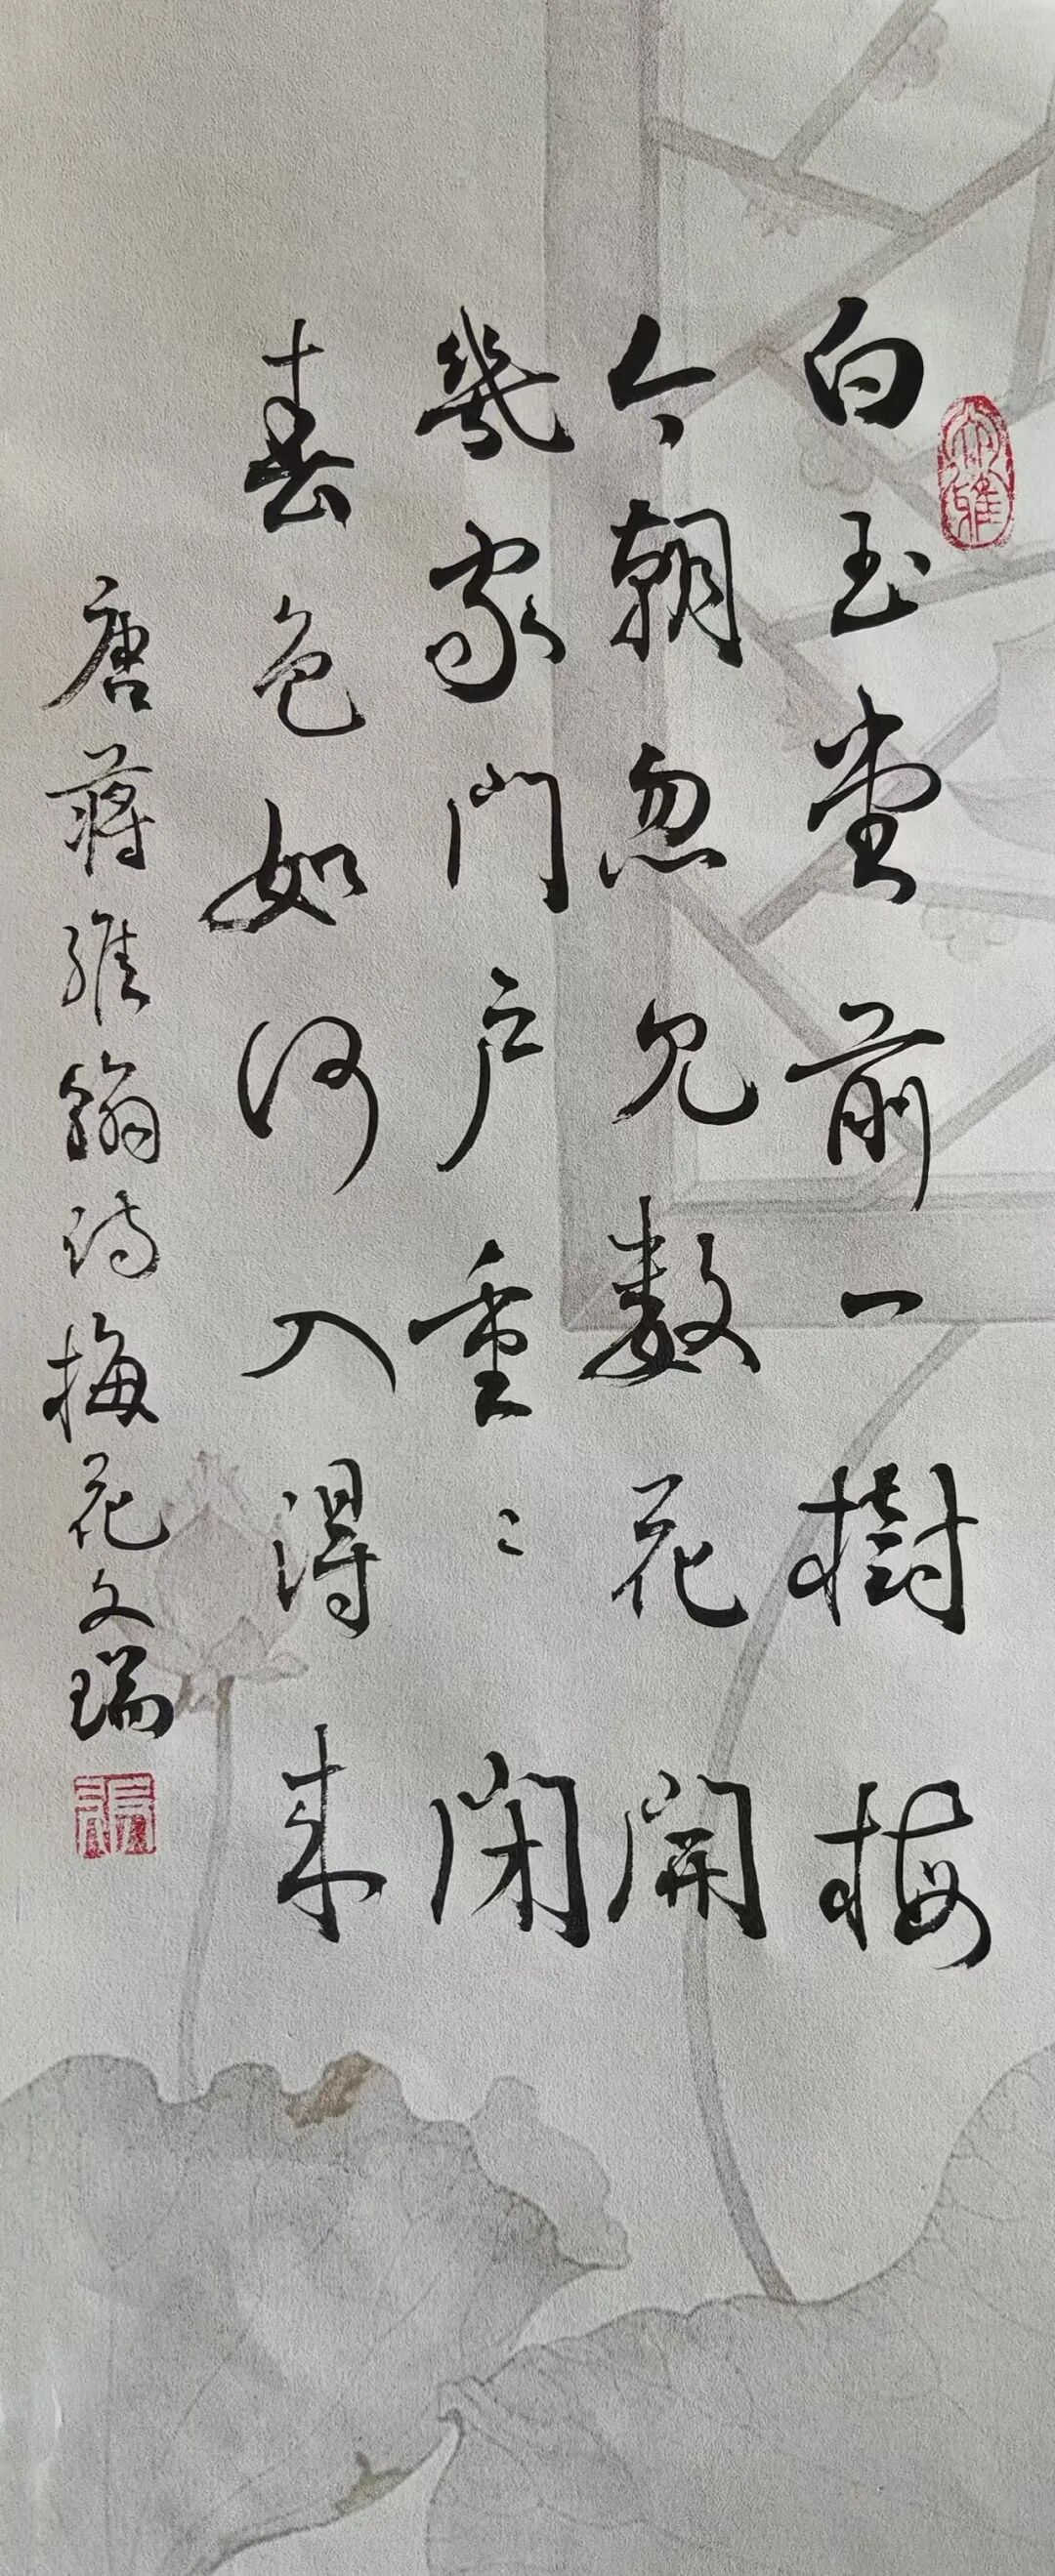 白玉堂前一樹梅
今朝忽见数花開
幾家門户重重閉
春色如何入得来
唐蒋維翰诗梅花文瑞